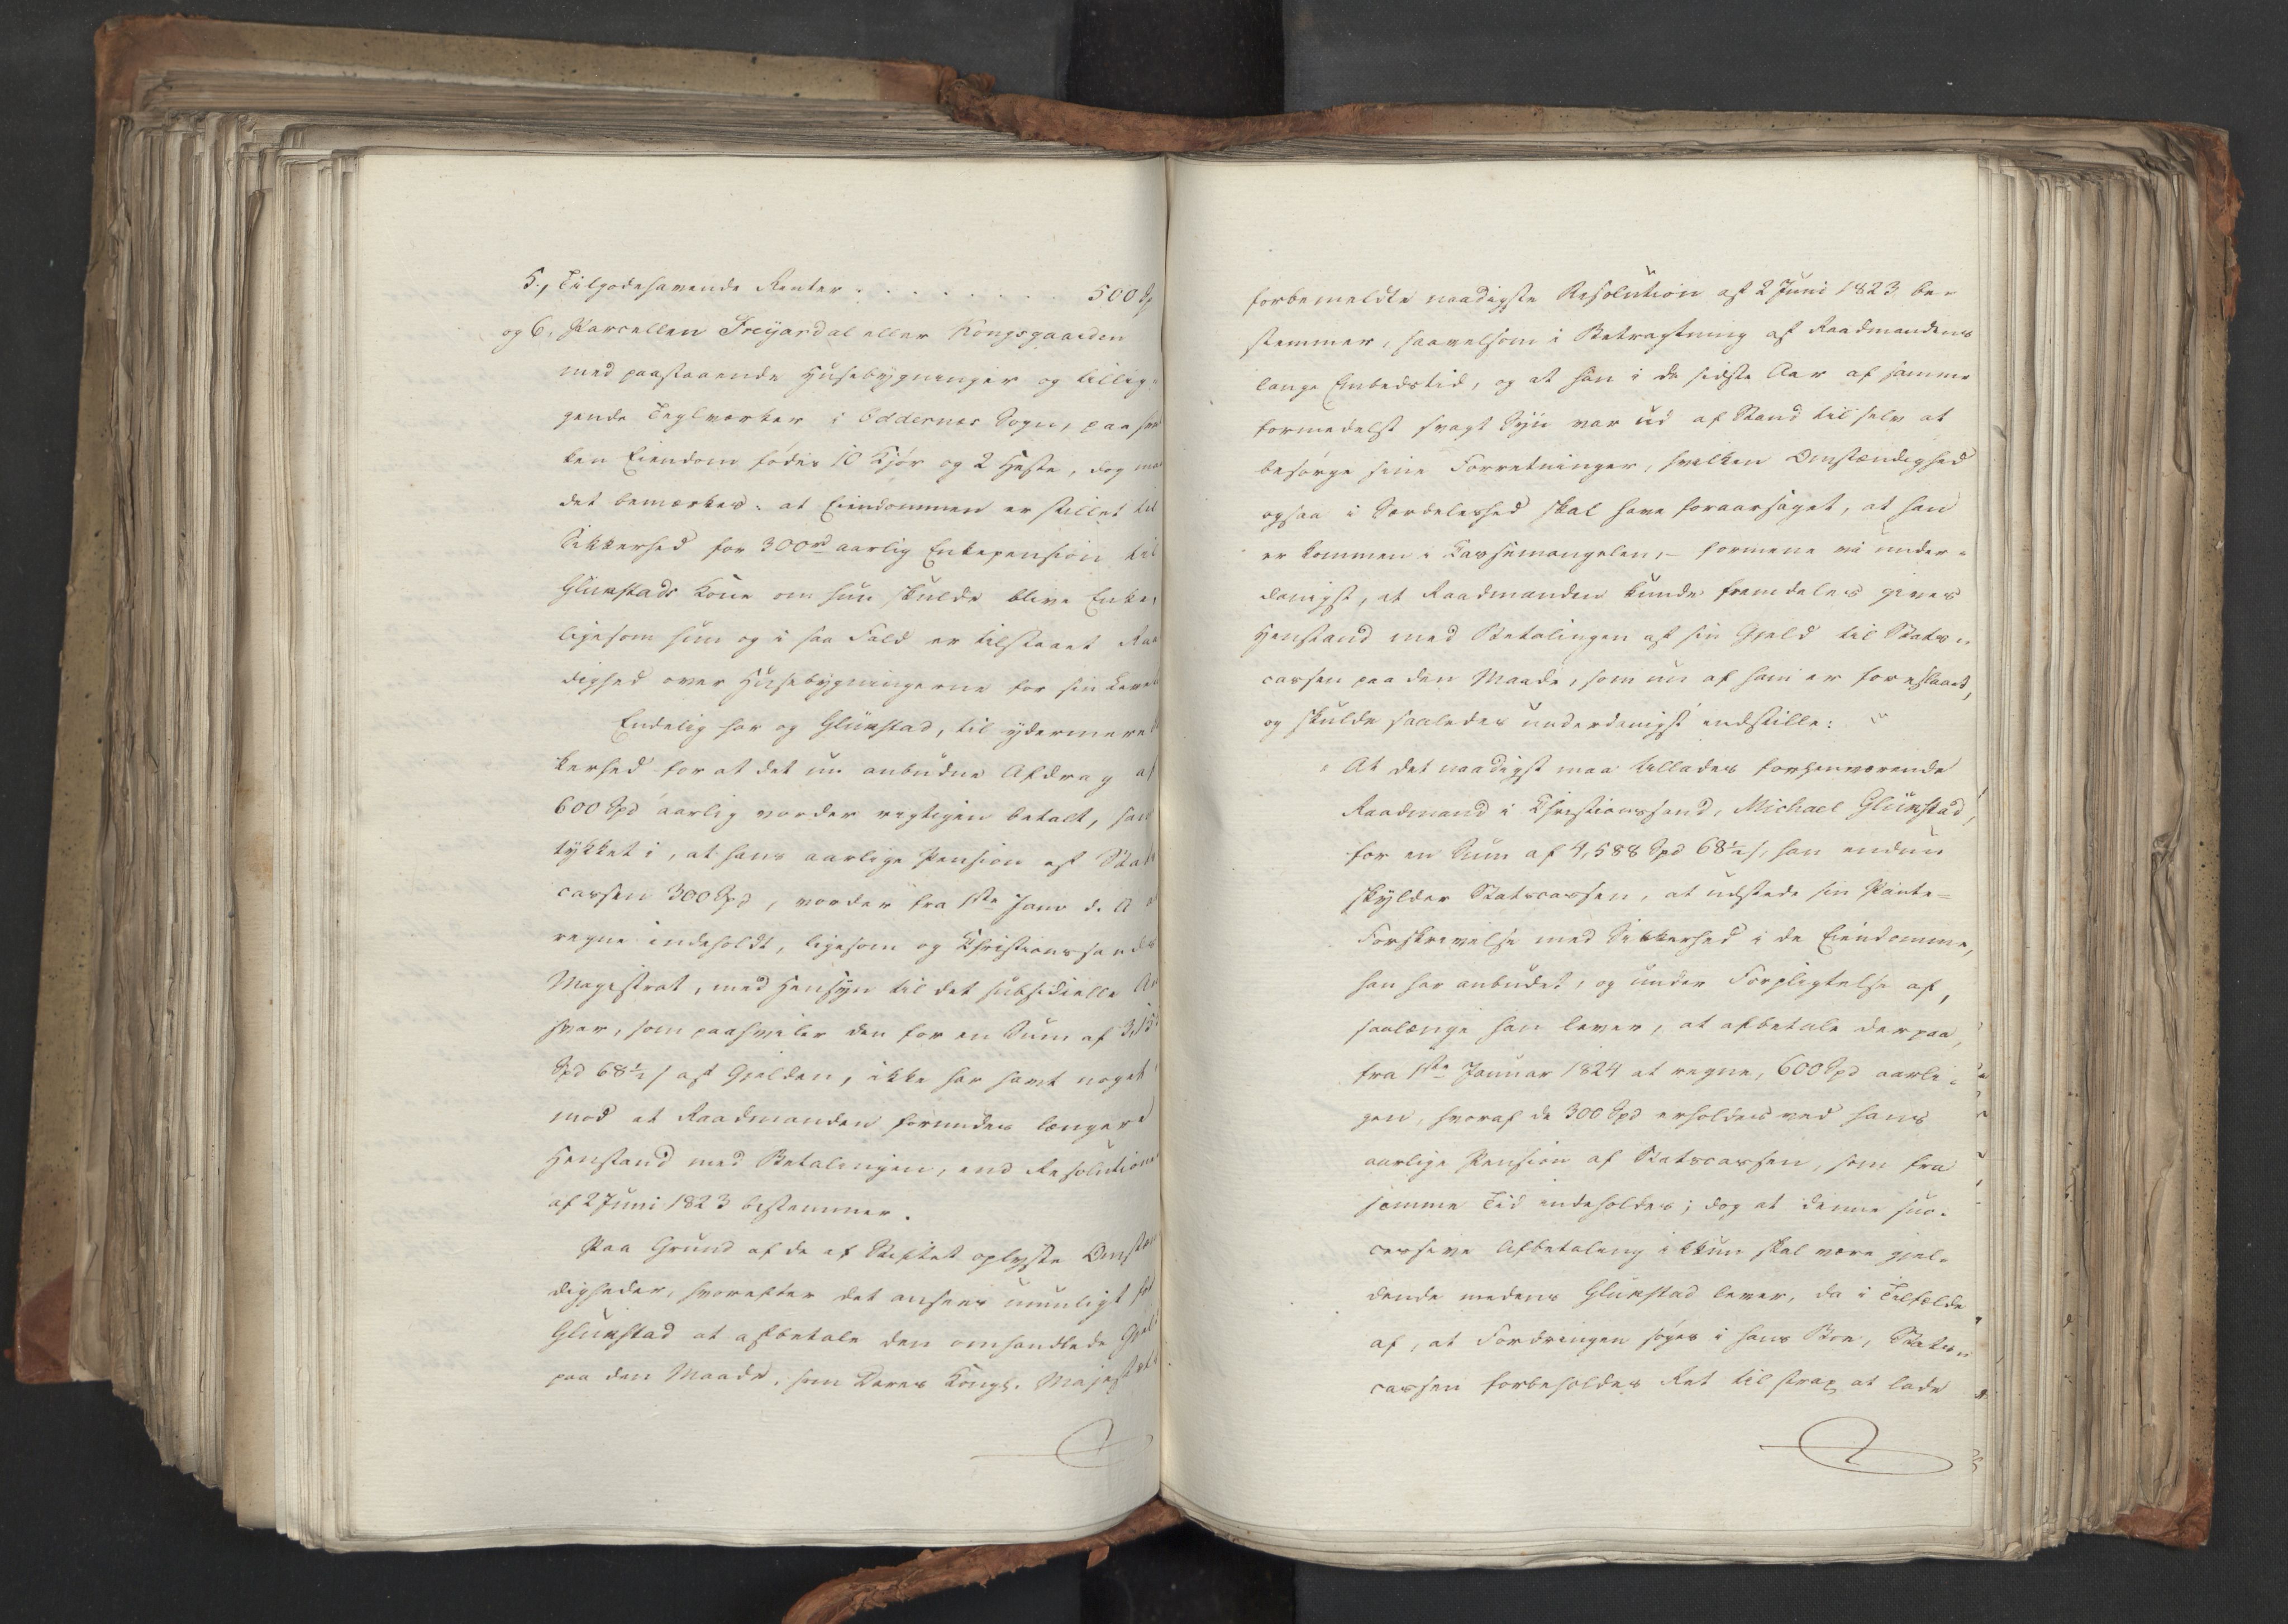 5., Tilgodehavende Renter . . . . . . . . . 500 Sp
og 6, Parcellen Freyardal eller Kongsgaarden
med paastaaende Husebygninger og tillig-
gende Teglverker i Oddernes Sogn, paa hvil
ken Eiendom födes 10 Kjör og 2 Heste, dog maa
det bemærkes: at Eiendommen er stillet til
Sikkerhed for 300 rd aarlig Enkepension til
Glükstads Kone om hun skulde blive Enke,
ligesom hun og i saa Fald er tilstaaet Raa
dighed over Husebygningerne for sin Leve
Endelig har og Glükstad, til ydermere
kerhed for at det nu anbudne Afdrag af
600 Spd aarlig vorder rigtigen betalt, sam
tykket i, at hans aarlige Pension af Stats
cassen 300 Spd, vorder fra 1ste Janr d. A. at
regne indeholdt, ligesom og Christianssands
Magistrat, med Hensyn til det subsidielle An
svar, som paahviler den for en Sum af 3,15
Spd 68½ s af Gjelden, ikke har havt noget
mod at Raadmanden forundes længere
Henstand med Betalingen, end Resolutionen
af 2 Juni 1823 bestemmer.
Paa Grund af de af Stiftet oplyste Omstæn
digheder, hvorefter det ansees umuligt for
Glükstad at afbetale den omhandlede Gjeld
paa den Maade, som Deres Kongl. Majestæts
forbemeldte naadigste Resolution af 2 Juni 1823 be-
stemmer, saavelsom i Betragtning af Raadmandens
lange Embedstid, og at han i de sidste Aar af samme
formedelst svagt Syn var ud af Stand til selv at
besörge sine Forretninger, hvilken Omstændighed
ogsaa i Særdeleshed skal have foraarsaget, at han
er kommen i Cassemangelen, - formene vi under-
danigst, at Raadmanden kunde fremdeles gives
Henstand med Betalingen af sin Gjeld til Stats-
cassen paa den Maade, som nu af ham er foreslaaet,
og skulde saaledes underdanigst indstille:
At det naadigst maa tillades forhenværende
Raadmand i Christianssand, Michael Glükstad,
for en Sum af 4,588 Spd 68½ s, han endnu
skylder Statscassen, at udstede sin Pante-
Forskrivelse med Sikkerhed i de Eiendomme,
han har anbudet, og under Forpligtelse af,
saalænge han lever, at afbetale derpaa,
fra 1ste Januar 1824 at regne, 600 Spd aarli-
gen, hvoraf de 300 Spd erholdes ved hans
aarlige Pension af Statscassen, som fra
samme Tid indeholdes; dog at denne suc-
cessive Afbetaling ikkun skal være gjel-
dende medens Glükstad lever, da i Tilfælde
af, at Fordringen söges i hans Boe, Stats-
cassen forbeholdes Ret til strax at lade